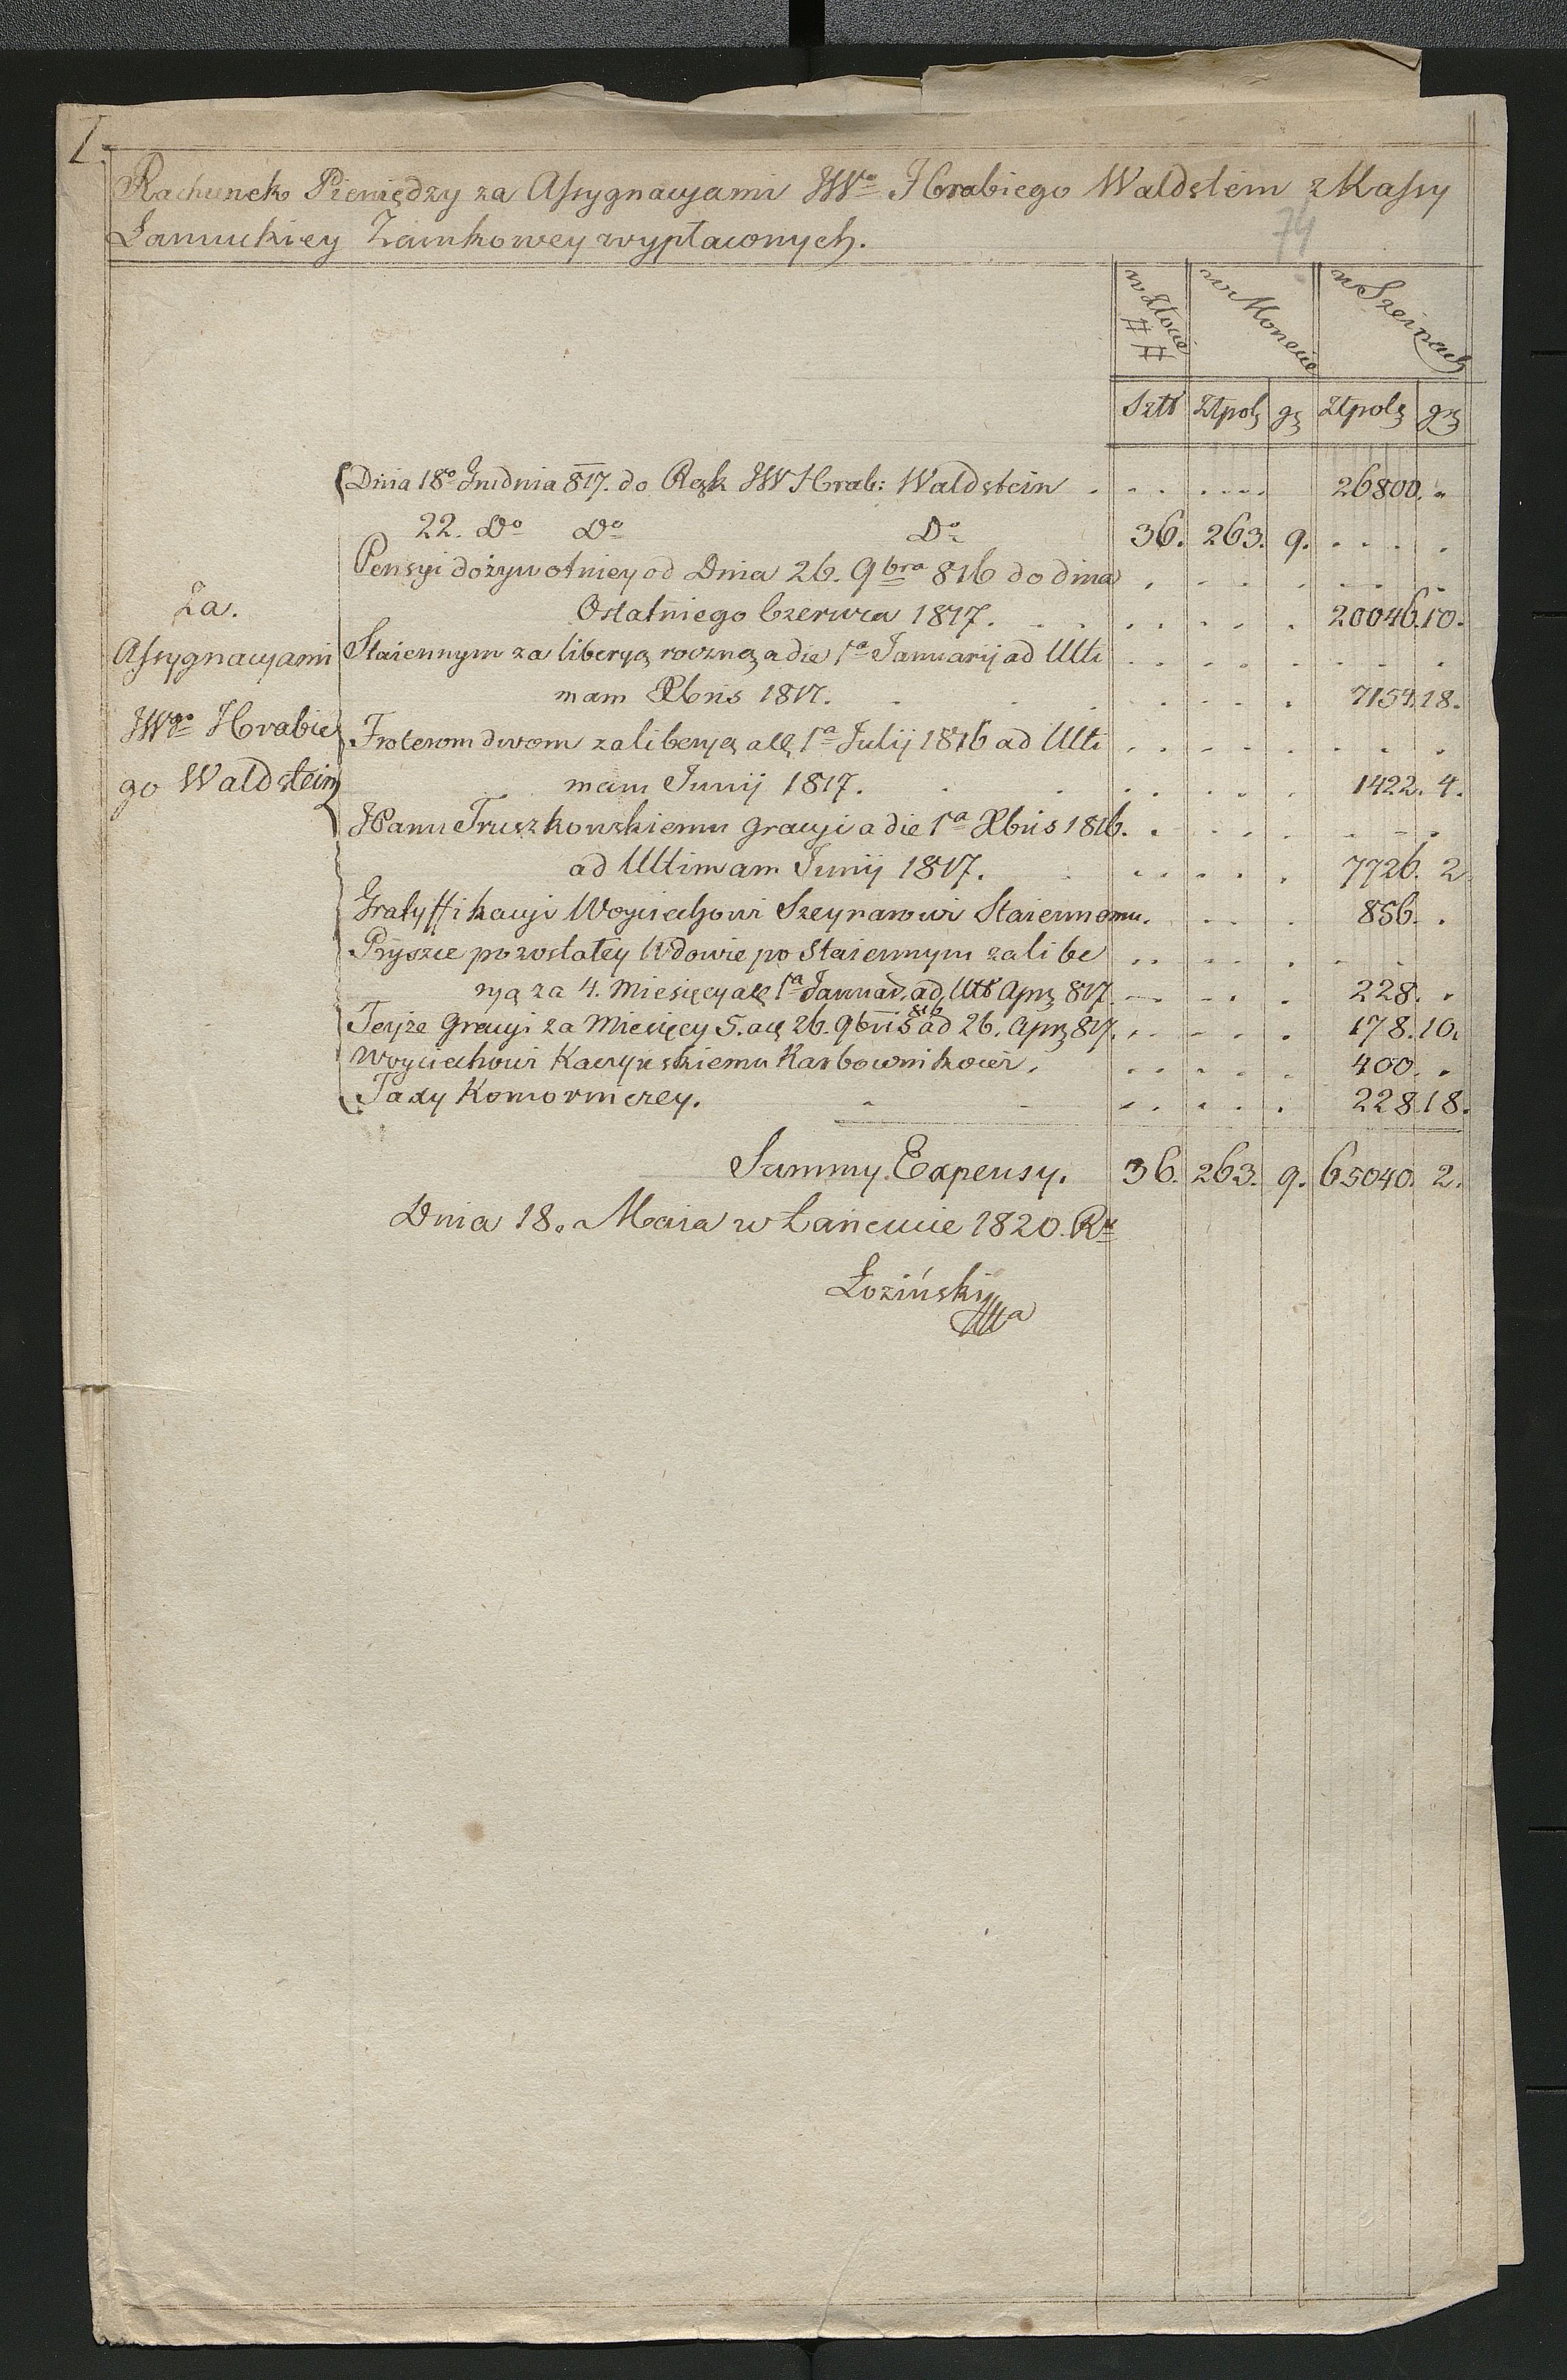 I.
Rachunek Pieniędzy za Assygnacyami JWo Hrabiego Waldstein z Kassy
74
Łancuckiey Zamkowey wypłaconych.
w Złocie ## w Monecie w Szeinach
Szt Złpol g Złpol gr
Dnia 18o Grudnia 817. do Rąk JW Hrab: Waldstein . 26800. "
22. Do Do Do 36. 263. 9. . . . .
Pensyi dożywotniey od Dnia 26. 9bra 816 do dnia
Za. Ostatniego Czerwca 1817. 20046. 10.
Assygnacyami Staiennym za liberyą roczną a die 1a Januarij ad Ulti
mam Xbris 1817. 7154. 18.
JWgo Hrabie Froterom dwom za liberyą a 1a Julij 1816 ad Ulti
go Waldstein mam Junij 1817. 1422. 4.
JPanu Truszkowskiemu Gracyi a die 1a Xbris 1816.
ad Ultimam Junij 1817. 7726. 2
Gratyffikacyi Woyciechowi Szeynarowi Staiennemu. 856. .
Pryszce pozostałey Wdowie po Staiennym za libe
ryą za 4. Miesięcy a 1a Januar. ad Ult Apr 817. 228. "
Teyże Gracyi za Miesięcy 5. a 26. 9bris 816 ad 26. Apr 817. 178. 10.
Woyciechowi Kaczynskiemu Karbownikowi. 400. "
Taxy Komorniczey. 228. 18.
Summy Expensy. 36. 263. 9. 65040. 2.
Dnia 18. Maia w Łancucie 1820. Rku
Łoziński